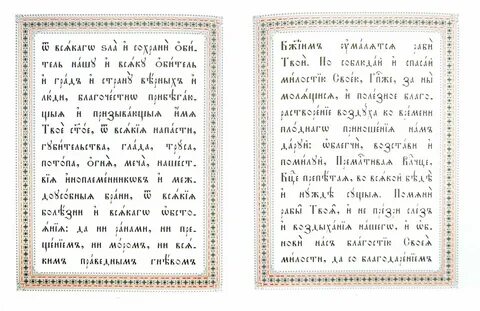 Ѿ всѧ́кагѡ ѕла̀ и҆ сохранѝ ѻ҆би́-
тель на́шꙋ и҆ всѧ́кꙋ ѻ҆би́тель
и҆ гра́дъ и҆ странꙋ̀ вѣ́рныхъ и҆
лю́ди, благоче́стнѡ прибѣга́ю-
щыѧ и҆ призыва́ющыѧ и҆́мѧ
Твоѐ ст҃о́е, ѿ всѧ́кїѧ напа́сти,
гꙋби́тельства, гла́да, трꙋ́са,
пото́па, ѻ҆гнѧ̀, меча̀, наше́ст-
вїѧ и҆ноплеме́нникѡвъ и҆ меж-
доꙋсо́бныѧ бра́ни, ѿ всѧ́кїѧ
болѣ́зни и҆ всѧ́кагѡ ѡ҆бсто-
ѧ́нїѧ: да ни ра́нами, ни пре-
ще́нїемъ, ни мо́ромъ, ни всѧ́-
кимъ пра́веднымъ гнѣ́вомъ
Бж҃їимъ ᲂу҆малѧ́тсѧ рабѝ
Твоѝ. Но соблюда́й и҆ спаса́й
ми́лостїю Свое́ю, Гпⷭ҇же, за ны̀
молѧ́щисѧ, и҆ поле́зное благо-
растворе́нїе во́здꙋха во вре́мени
плодна́гѡ приноше́нїѧ на́мъ
да́рꙋй: ѡ҆блегчѝ, возста́ви и҆
поми́лꙋй, Премⷭ҇тиваѧ Влⷣчце,
Бц҃е препѣ́таѧ, во всѧ́кой бѣдѣ̀
и҆ нꙋ́ждѣ сꙋ́щыѧ. Помѧнѝ
рабы̑ Твоѧ̑, и҆ не пре́зри сле́зъ
и҆ воздыха́нїѧ на́шегѡ, и҆ ѡ҆б-
новѝ на́съ бла́гостїю Своеѧ̀
ми́лости, да со благодаре́нїемъ